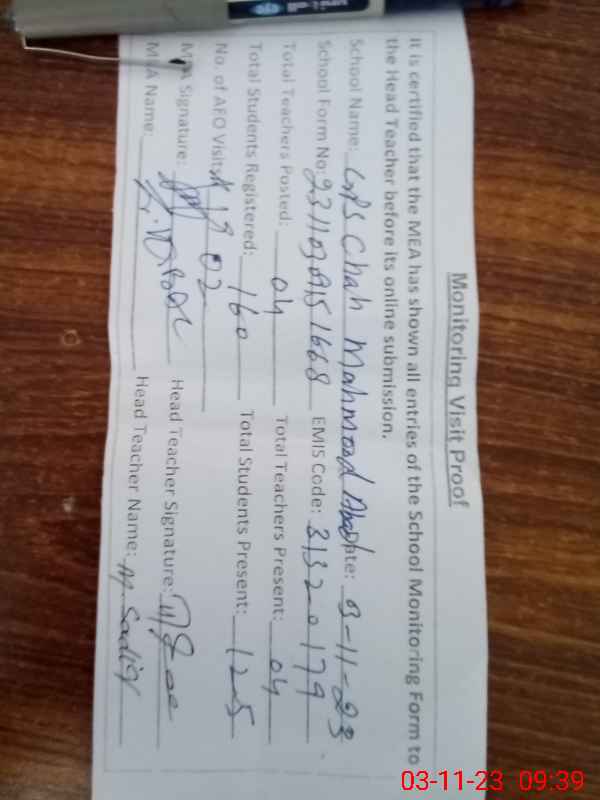 Monitoring Visit Proof
It is certified that the MEA has shown all entries of the School Monitoring Form to
the Head Teacher before its online submission.
School Name: GPS Chah Mahmood Abad Date: 03-11-23
School Form No: EMIS Code: 31320179
Total Teachers Posted: 04 Total Teachers Present: 04
Total Students Registered: 160 Total Students Present: 125
No. of AEO Visits: 02
MEA Signature: Head Teacher Signature:
MEA Name: Head Teacher Name: M. Sadiq
03-11-23 09:39